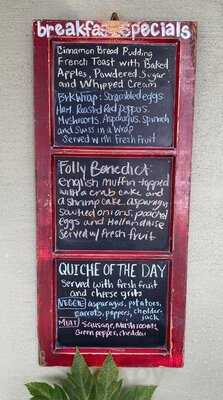 breakfast specials
Cinnamon Bread Pudding
French Toast with Baked
Apples, Powdered Sugar
and Whipped Cream
Brk Wrap: Scrambled eggs
Ham, Roasted Red Peppers,
Mushrooms, Asparagus, Spinach
and Swiss in a Wrap
Served with Fresh Fruit
Folly Benedict:
english muffin topped
with a crab cake and
a shrimp cake, asparagus,
sautéed onions, poached
eggs and Hollandaise
served w/ fresh fruit
QUICHE OF THE DAY
Served with fresh fruit
and cheese grits
VEGGIE asparagus, potatoes,
carrots, peppers, cheddar-
jack
MEAT: Sausage, Mushrooms,
Green pepper, cheddar